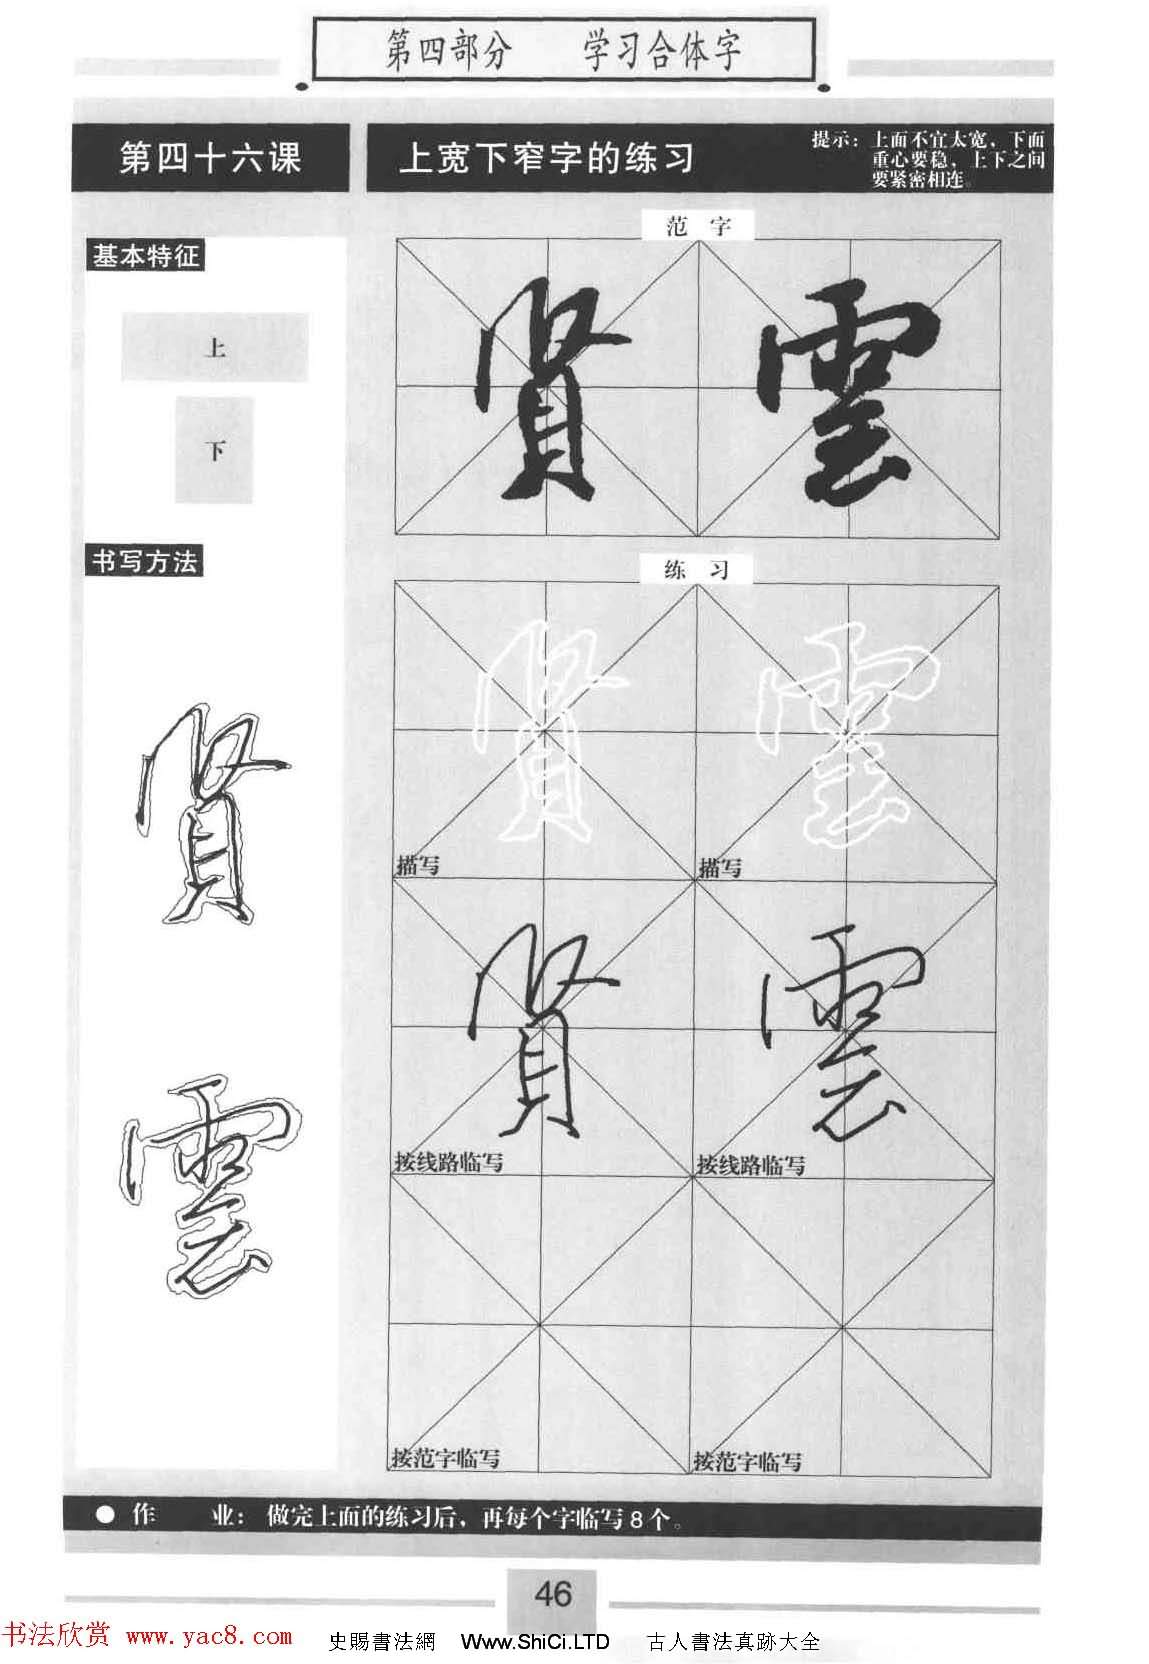 第四部分 学习合体字
第四十六课
上宽下窄字的练习
提示：上面不宜太宽，下面
重心要稳，上下之间
要紧密相连。
基本特征
上
下
书写方法
賢
雲
范 字
賢 雲
练 习
賢 雲
描写 描写
賢 雲
按线路临写 按线路临写
按范字临写 按范字临写
● 作 业：做完上面的练习后，再每个字临写8个。
46
书法欣赏 www.yac8.com 史賜書法網 Www.ShiCi.LTD 古人書法真跡大全